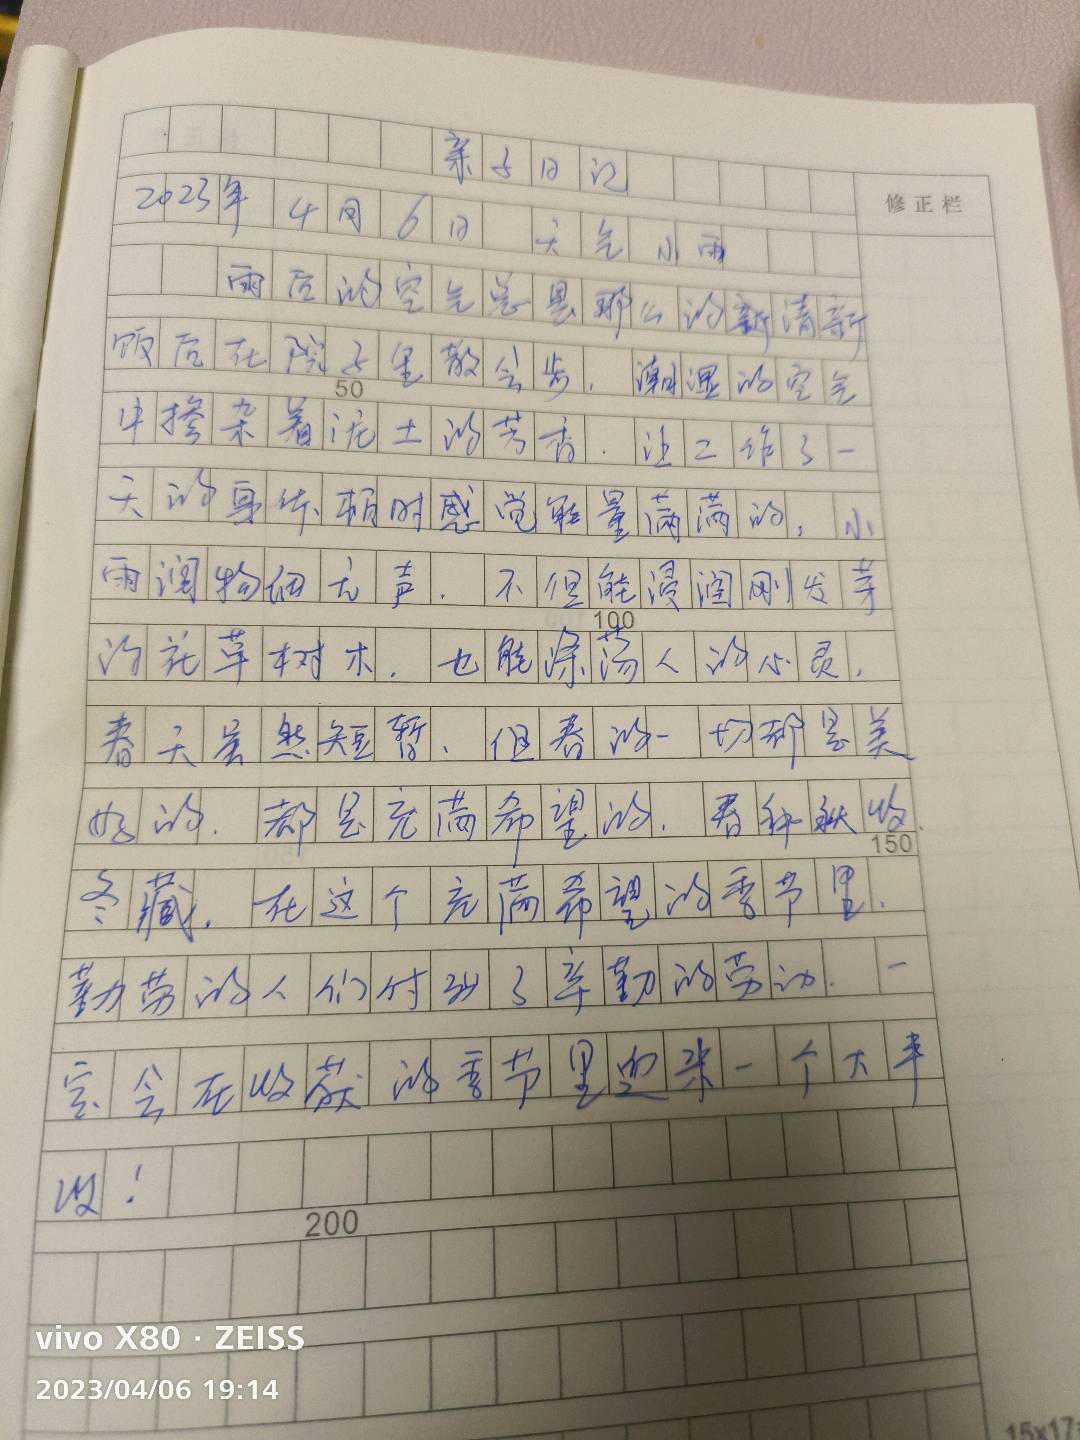 亲子日记
修正栏
2023年4月6日 天气小雨
雨后的空气总是那么的新清新
饭后在院子里散会步. 潮湿的空气
中掺杂着泥土的芳香. 让工作了一
天的身体顿时感觉能量满满的, 小
雨润物细无声. 不但能浸润刚发芽
的花草树木. 也能涤荡人的心灵.
春天虽然短暂. 但春的一切都是美
好的. 都是充满希望的. 春种秋收.
冬藏. 在这个充满希望的季节里.
勤劳的人们付出了辛勤的劳动. 一
定会在收获的季节里迎来一个大丰
收!
50
100
150
200
vivo X80 · ZEISS
2023/04/06 19:14